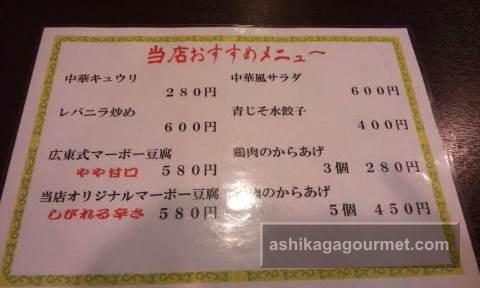 当店おすすめメニュー
中華キュウリ
280円
中華風サラダ
600円
レバニラ炒め
600円
青じそ水餃子
400円
広東式マーボー豆腐
やや甘口 580円
鶏肉のからあげ
3個 280円
当店オリジナルマーボー豆腐
しびれる辛さ 580円
肉のからあげ
5個 450円
ashikagagourmet.com